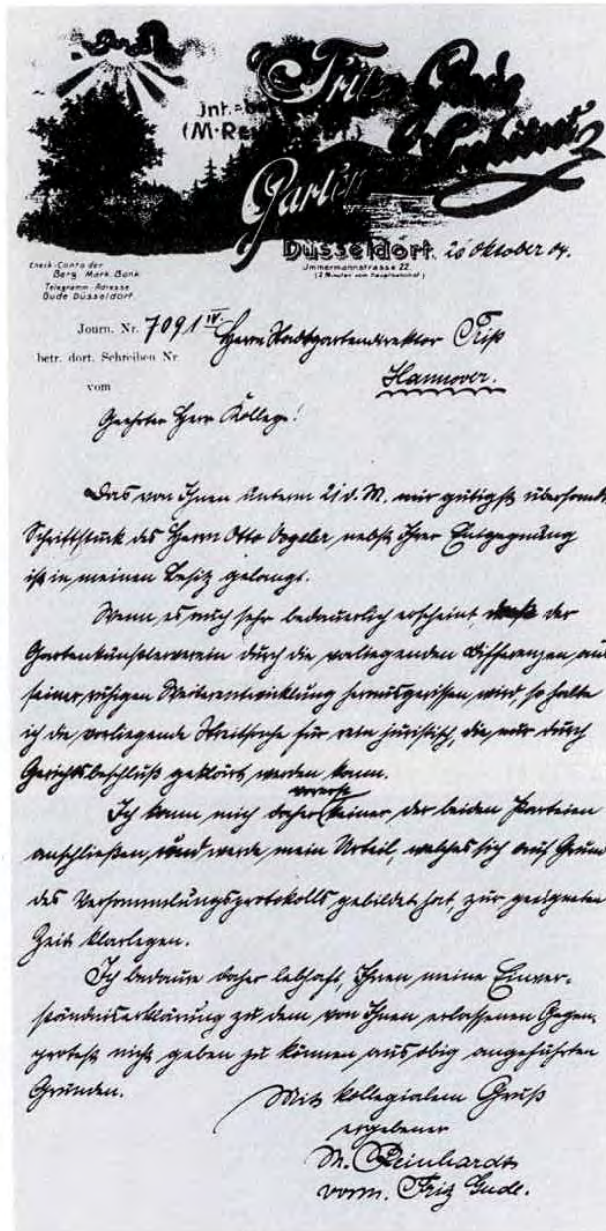 Fritz Gude
Inhaber
(M. Reinhardt)
Garten-Architekt
Düsseldorf, 26 Oktober 04.
Immermannstrasse 22.
(2 Minuten vom Hauptbahnhof)
Check-Conto der
Berg. Märk. Bank
Telegramm-Adresse
Gude Düsseldorf.
Journ. Nr. 7091 IV.
Herrn Stadtgartendirektor Trip
betr. dort. Schreiben Nr.
Hannover.
vom
Geehrter Herr Kollege!
Das von Ihnen unterm 21 d. M. mir gütigst übersandte
Schriftstück des Herrn Otto Vogeler nebst Ihrer Entgegnung
ist in meinen Besitz gelangt.
Wenn es auch sehr bedauerlich erscheint, dass der
Gartenkünstlerverein durch die vorliegenden Differenzen aus
seiner ruhigen Weiterentwicklung herausgerissen wird, so halte
ich die vorliegende Streitsache für rein juristisch, die nur durch
Gerichtsbeschluß geklärt werden kann.
Ich kann mich daher vorerst keiner der beiden Parteien
anschließen, und werde mein Urteil, welches sich auf Grund
des Versammlungsprotokolls gebildet hat, zur geeigneten
Zeit klarlegen.
Ich bedaure daher lebhaft, Ihnen meine Einver-
ständniserklärung zu dem von Ihnen erlassenen Gegen-
protest nicht geben zu können aus obig angeführten
Gründen.
Mit kollegialem Gruß
ergebener
M. Reinhardt
vorm. Fritz Gude.